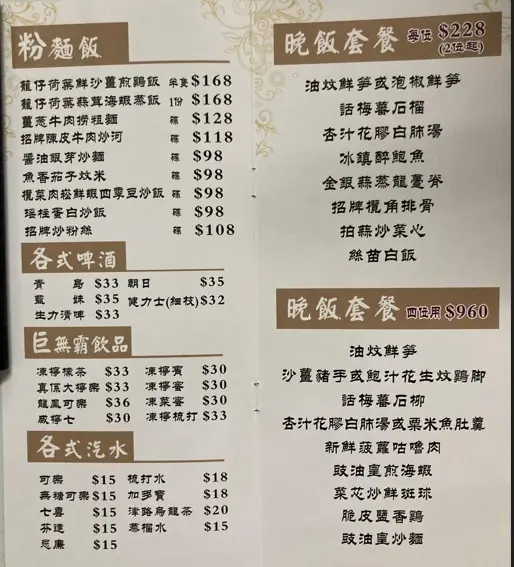 粉麵飯
籠仔荷葉鮮沙薑煎鷄飯 半隻 $168
籠仔荷葉蒜茸海蝦蒸飯 1份 $168
薑葱牛肉撈粗麵 碟 $128
招牌陳皮牛肉炒河 碟 $118
醬油銀芽炒麵 碟 $98
魚香茄子炆米 碟 $98
欖菜肉崧鮮蝦四季豆炒飯 碟 $98
瑤柱蛋白炒飯 碟 $98
招牌炒粉絲 碟 $108
各式啤酒
青島 $33 朝日 $35
藍妹 $35 健力士(細枝) $32
生力清啤 $33
巨無霸飲品
凍檸檬茶 $33 凍檸賓 $30
真係大檸樂 $33 凍檸蜜 $30
龍鳳可樂 $36 凍菜蜜 $30
咸檸七 $30 凍檸梳打 $33
各式汽水
可樂 $15 梳打水 $18
無糖可樂 $15 加多寶 $18
七喜 $15 津路烏龍茶 $20
芬達 $15 蒸餾水 $15
忌廉 $15
晚飯套餐 每位 $228
(2位起)
油炆鮮笋或泡椒鮮笋
話梅蕃石榴
杏汁花膠白肺湯
冰鎮醉鮑魚
金銀蒜蒸龍躉脊
招牌欖角排骨
拍蒜炒菜心
絲苗白飯
晚飯套餐 四位用 $960
油炆鮮笋
沙薑豬手或鮑汁花生炆鷄脚
話梅蕃石柳
杏汁花膠白肺湯或粟米魚肚羹
新鮮菠蘿咕嚕肉
豉油皇煎海蝦
菜花炒鮮斑球
脆皮鹽香鷄
豉油皇炒麵